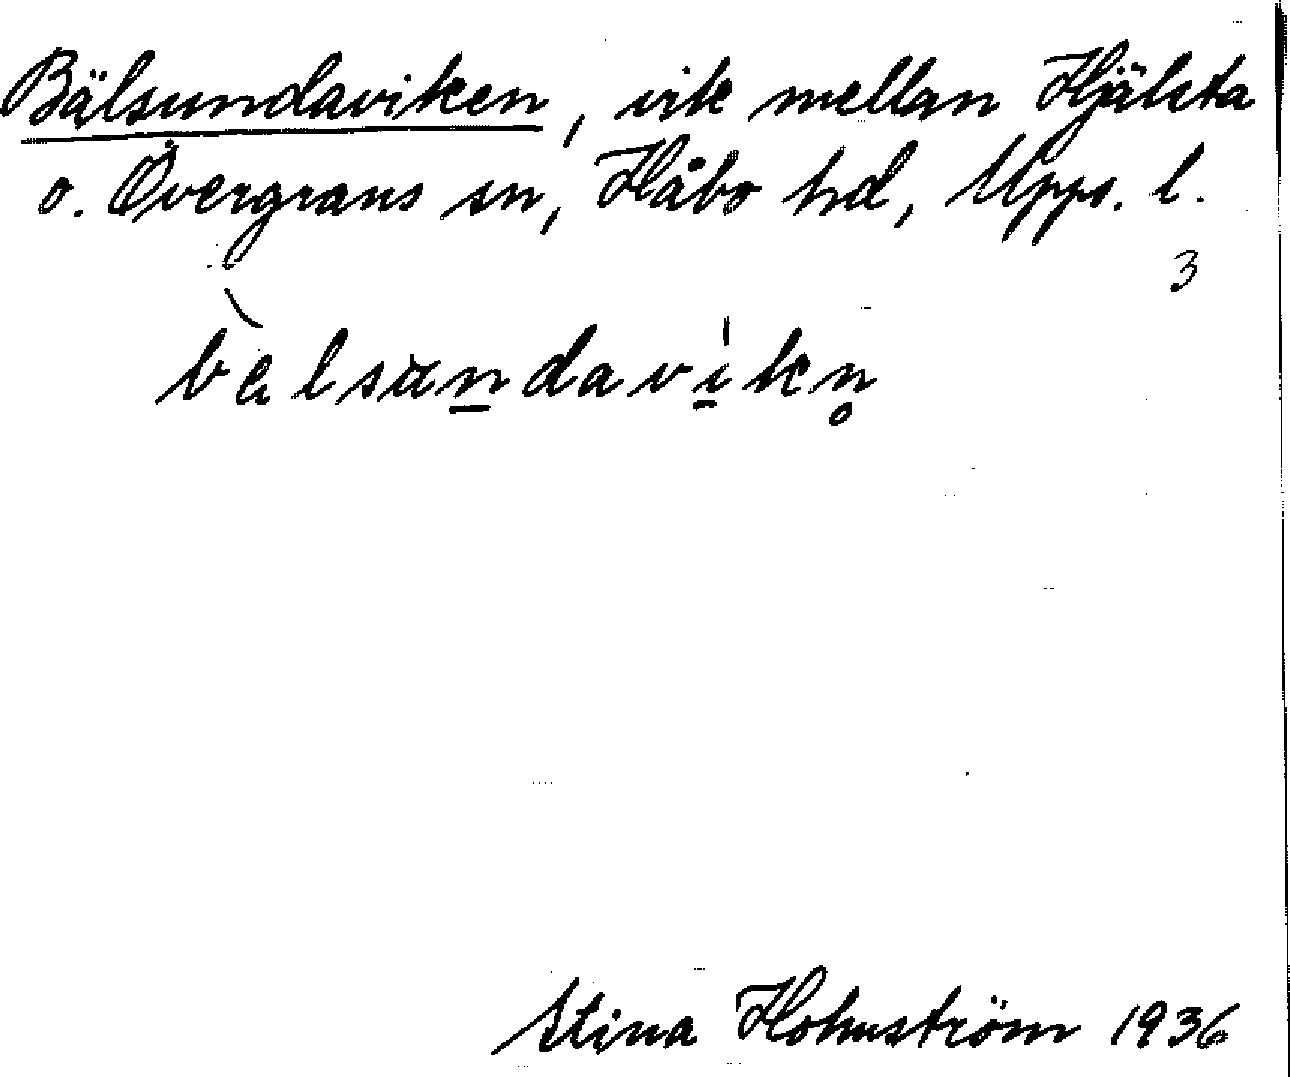 Bälsundaviken, vik mellan Hjälsta
o. Övergrans sn, Håbo hd, Upps. l.
3
bèlsundavikn̥
Stina Holmström 1936